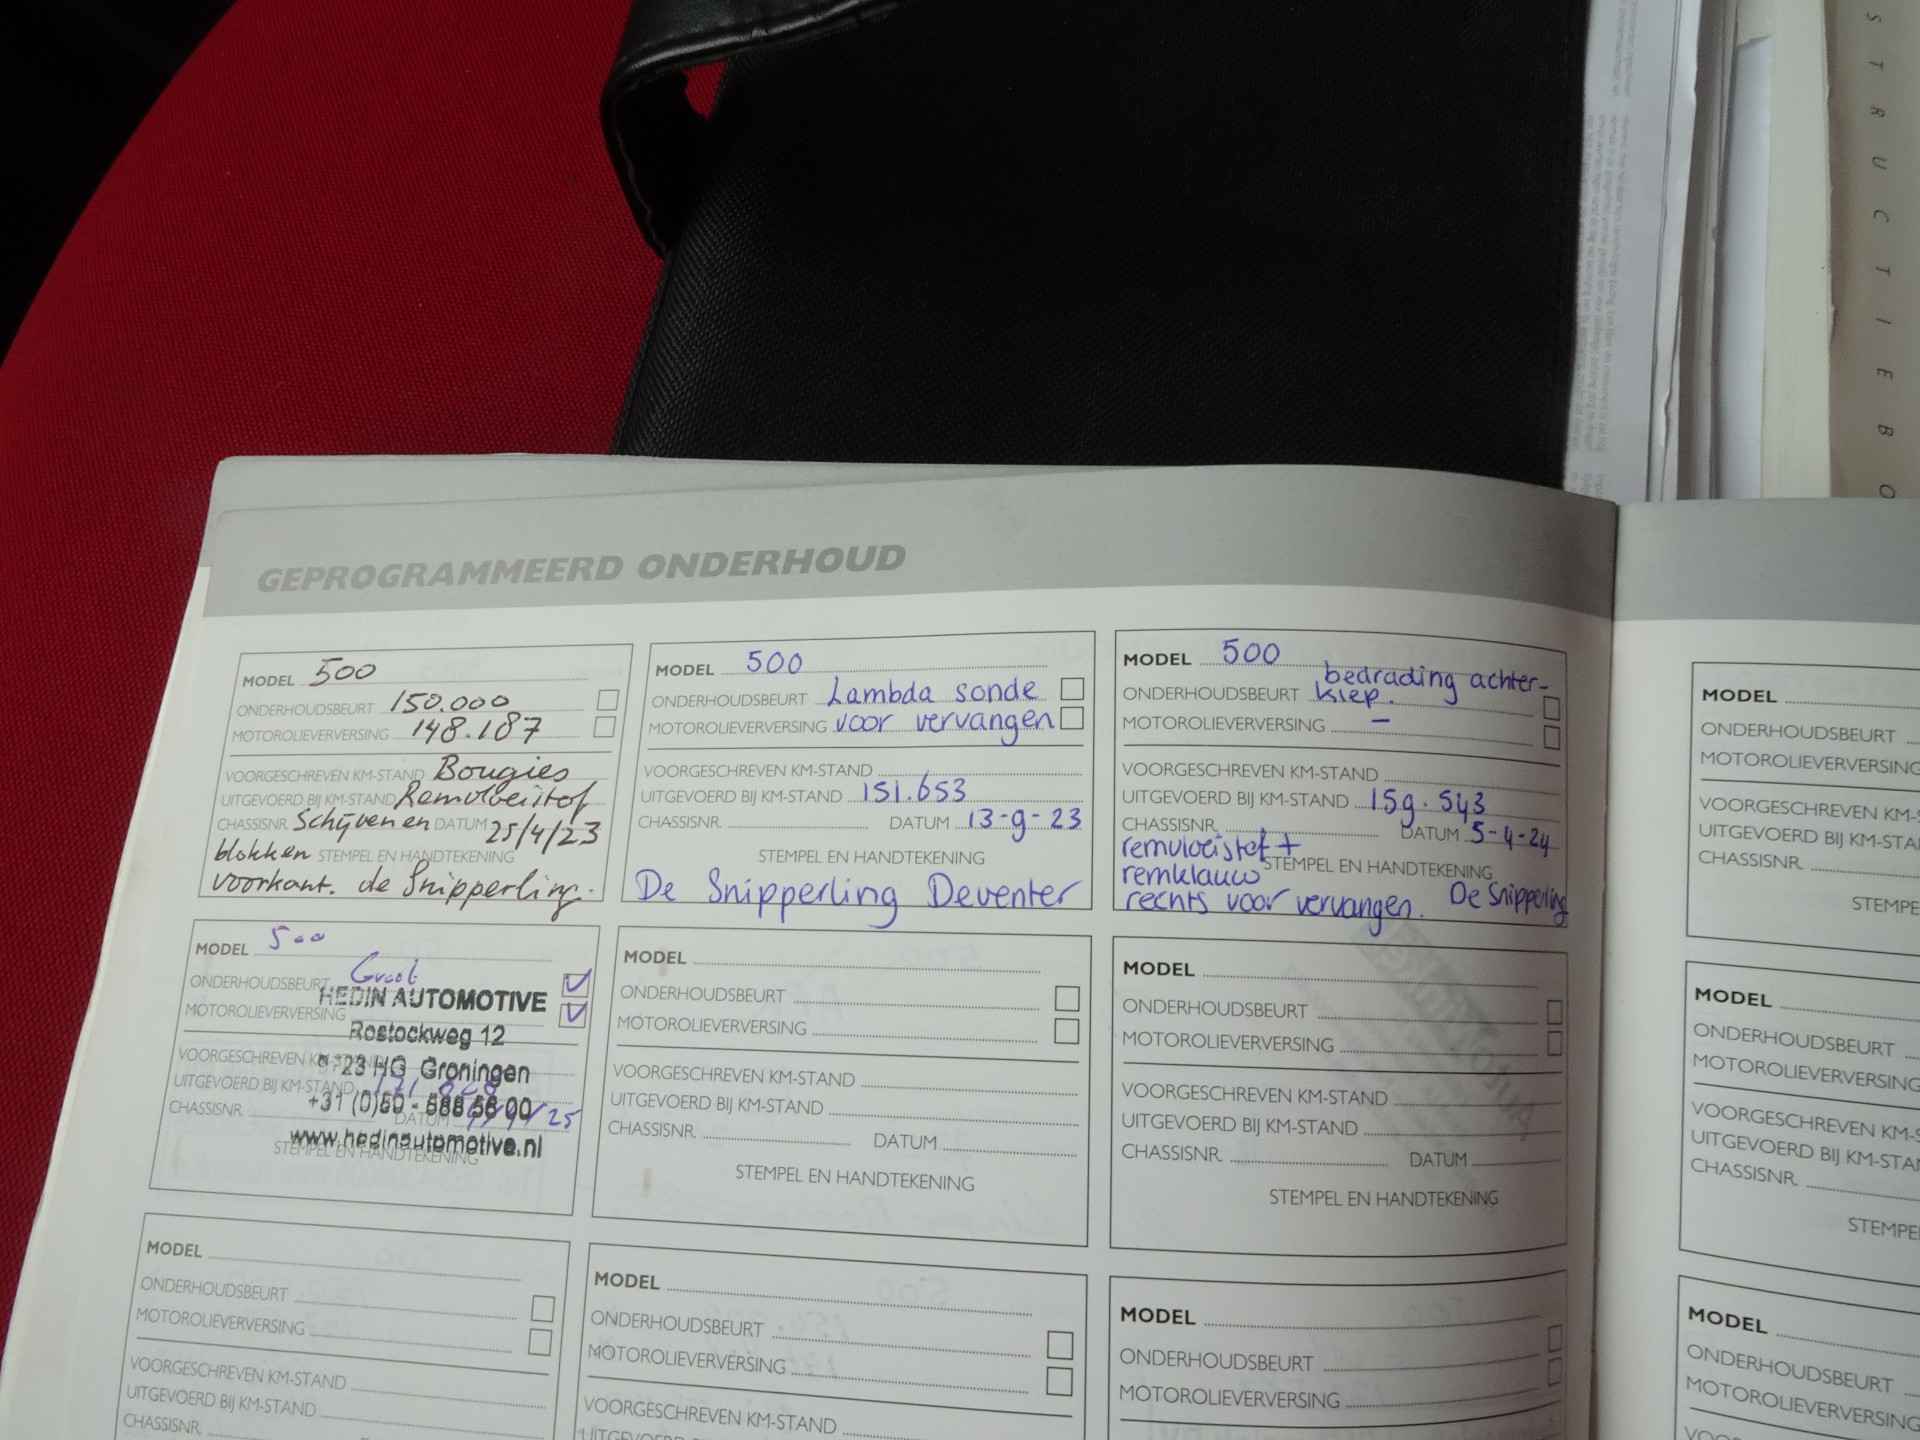 STRUCTIEBO
GEPROGRAMMEERD ONDERHOUD
MODEL 500
ONDERHOUDSBEURT 150.000
MOTOROLIEVERVERSING 148.187
VOORGESCHREVEN KM-STAND Bougies
UITGEVOERD BIJ KM-STAND Remvloeistof
CHASSISNR. Schijven en DATUM 25/4/23
blokken STEMPEL EN HANDTEKENING
voorkant. de Snipperling.
MODEL 500
ONDERHOUDSBEURT Lambda sonde
MOTOROLIEVERVERSING voor vervangen
VOORGESCHREVEN KM-STAND
UITGEVOERD BIJ KM-STAND 151.653
CHASSISNR. DATUM 13-9-23
STEMPEL EN HANDTEKENING
De Snipperling Deventer
MODEL 500
bedrading achter-
ONDERHOUDSBEURT klep.
MOTOROLIEVERVERSING -
VOORGESCHREVEN KM-STAND
UITGEVOERD BIJ KM-STAND 159.543
CHASSISNR. DATUM 5-4-24
remvloeistof +
STEMPEL EN HANDTEKENING
remklauw
rechts voor vervangen. De Snipperling
MODEL
ONDERHOUDSBEURT
MOTOROLIEVERVERSING
VOORGESCHREVEN KM-S
UITGEVOERD BIJ KM-STA
CHASSISNR.
STEMPE
MODEL 500
ONDERHOUDSBEURT Groot
HEDIN AUTOMOTIVE
MOTOROLIEVERVERSING
Rostockweg 12
VOORGESCHREVEN KM-STAND
23 HG Groningen
UITGEVOERD BIJ KM-STAND
+31 (0)50 - 588 58 00
CHASSISNR. DATUM 25
www.hedinautomotive.nl
STEMPEL EN HANDTEKENING
MODEL
ONDERHOUDSBEURT
MOTOROLIEVERVERSING
VOORGESCHREVEN KM-STAND
UITGEVOERD BIJ KM-STAND
CHASSISNR. DATUM
STEMPEL EN HANDTEKENING
MODEL
ONDERHOUDSBEURT
MOTOROLIEVERVERSING
VOORGESCHREVEN KM-STAND
UITGEVOERD BIJ KM-STAND
CHASSISNR. DATUM
STEMPEL EN HANDTEKENING
MODEL
ONDERHOUDSBEURT
MOTOROLIEVERVERSING
VOORGESCHREVEN KM-S
UITGEVOERD BIJ KM-STAN
CHASSISNR.
STEMPEL
MODEL
ONDERHOUDSBEURT
MOTOROLIEVERVERSING
VOORGESCHREVEN KM-STAND
UITGEVOERD BIJ KM-STAND
CHASSISNR.
MODEL
ONDERHOUDSBEURT
MOTOROLIEVERVERSING
VOORGESCHREVEN KM-STAND
MODEL
ONDERHOUDSBEURT
MOTOROLIEVERVERSING
MODEL
ONDERHOUDSBEURT
MOTOROLIEVERVERSING